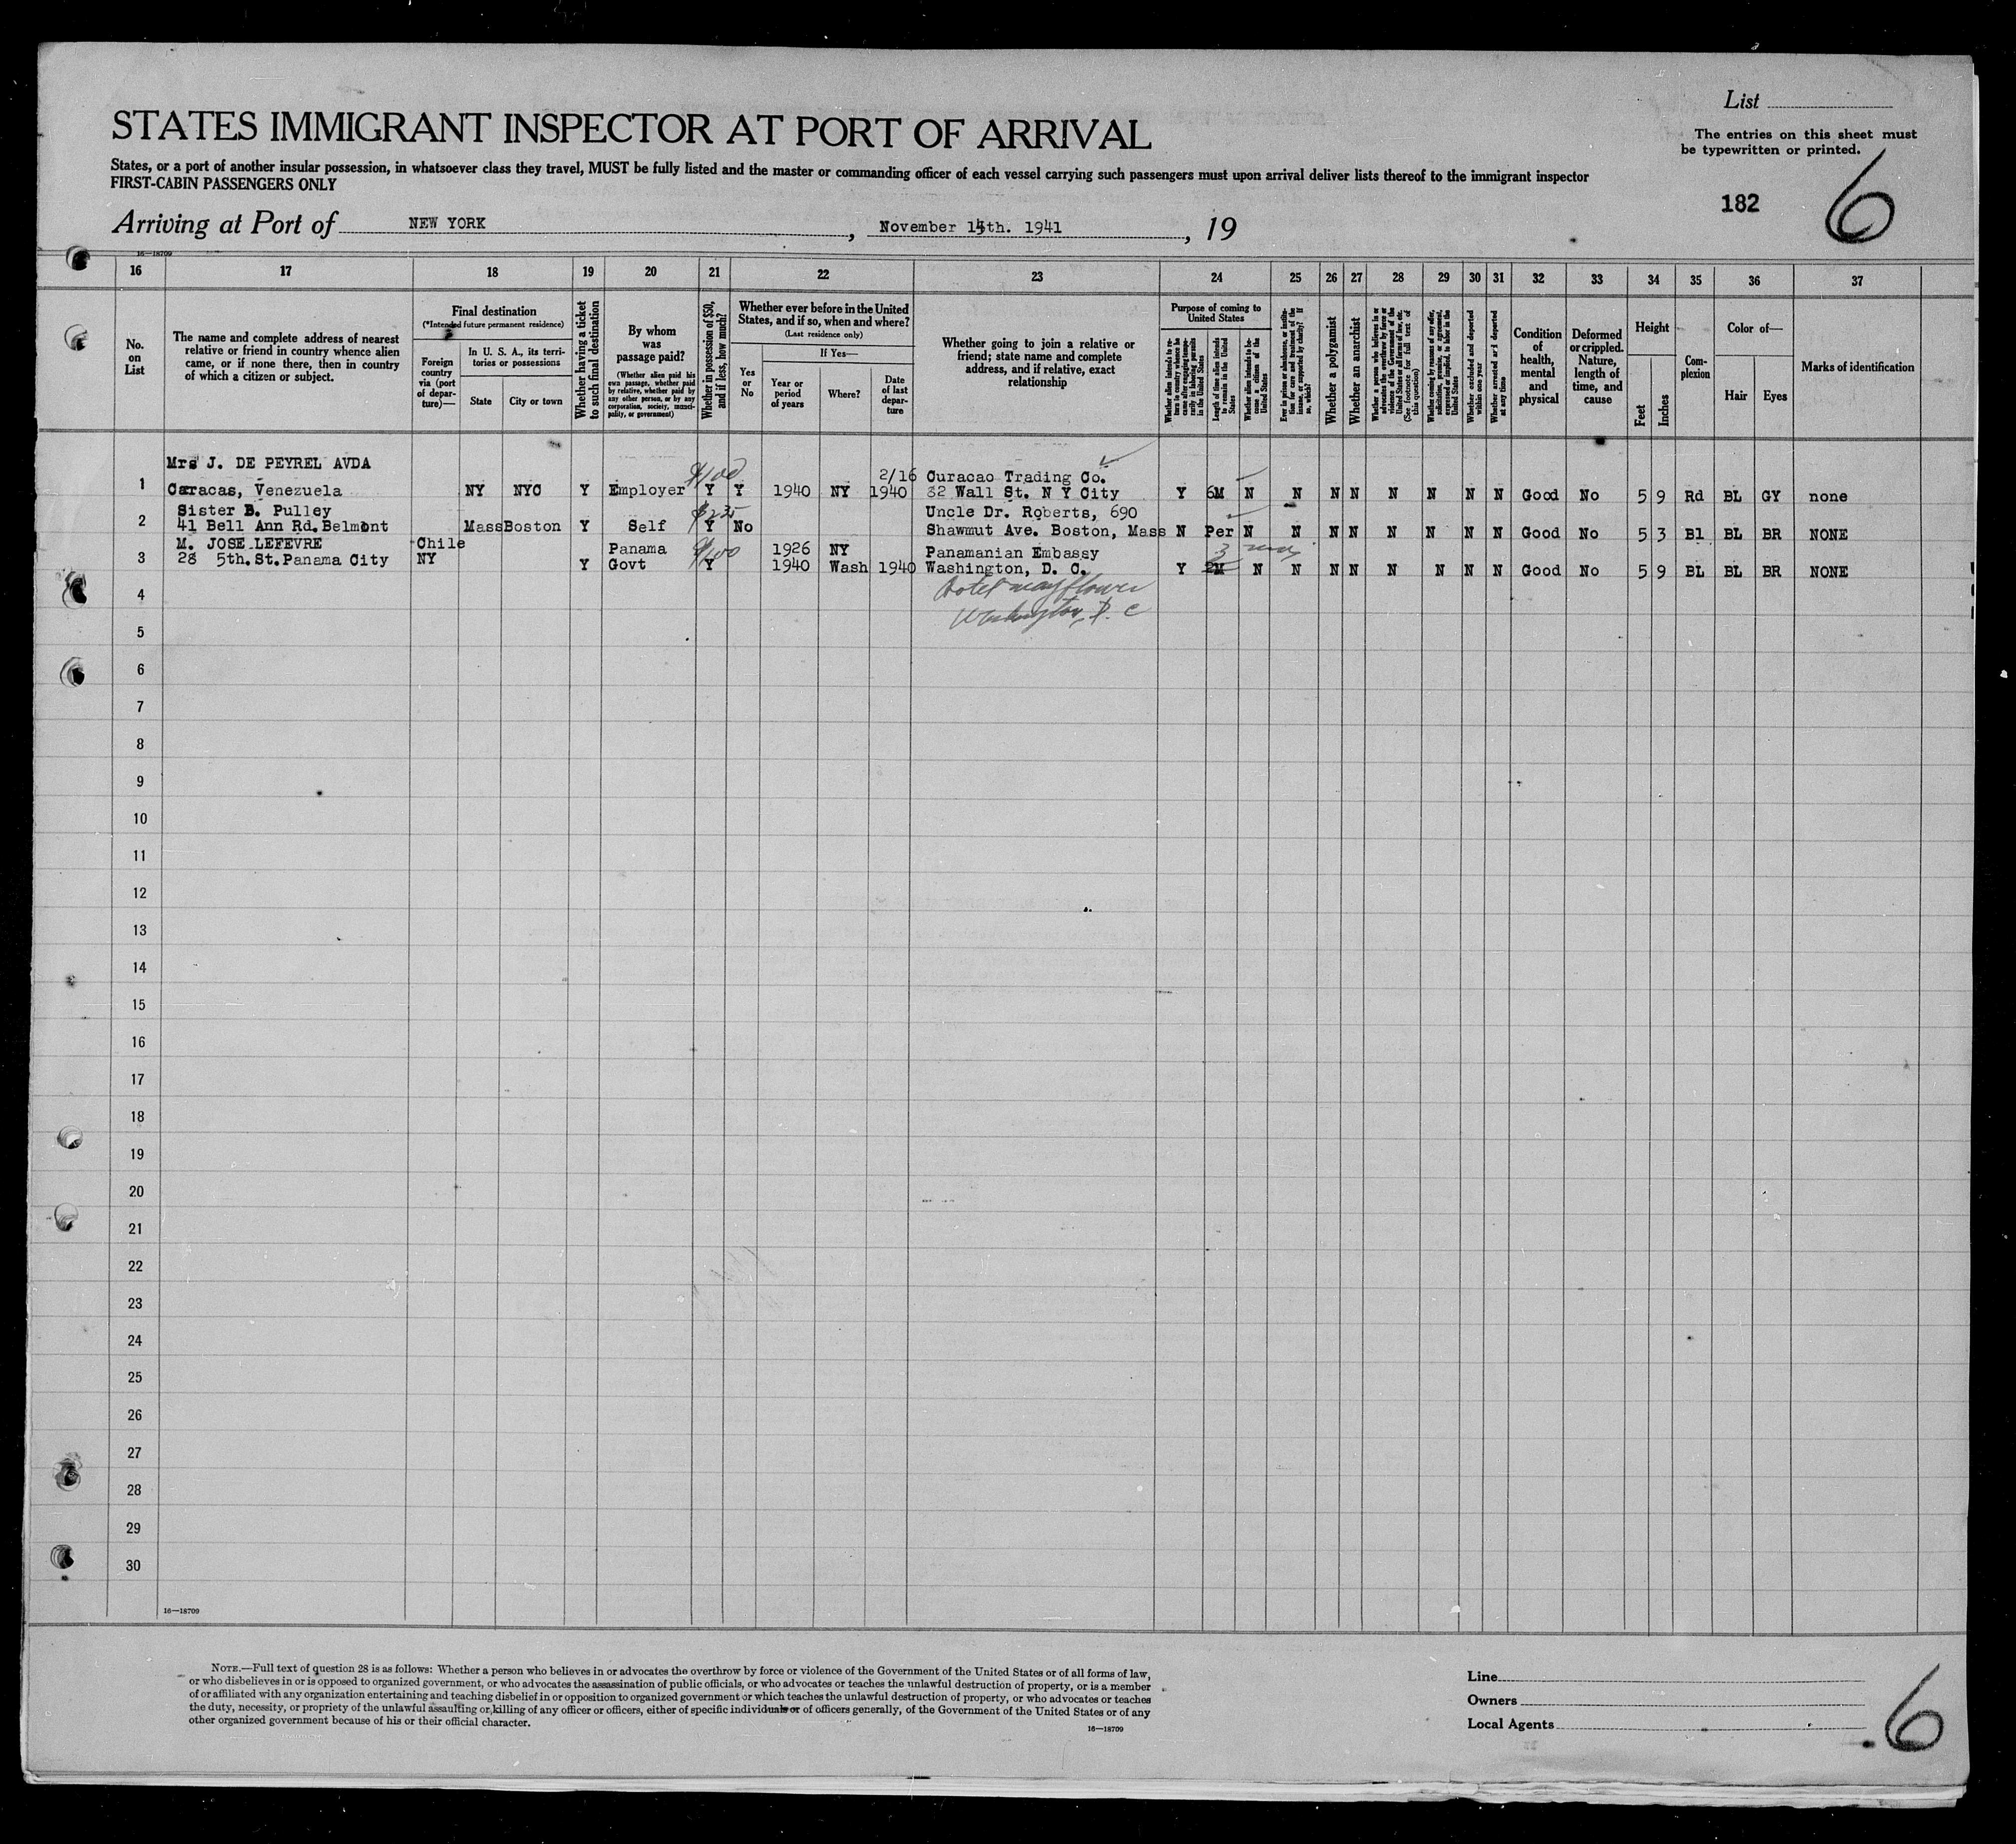 List
STATES IMMIGRANT INSPECTOR AT PORT OF ARRIVAL
The entries on this sheet must
be typewritten or printed.
States, or a port of another insular possession, in whatsoever class they travel, MUST be fully listed and the master or commanding officer of each vessel carrying such passengers must upon arrival deliver lists thereof to the immigrant inspector
FIRST-CABIN PASSENGERS ONLY
182 6
Arriving at Port of NEW YORK, November 14th. 1941, 19
16—18709
16 17 18 19 20 21 22 23 24 25 26 27 28 29 30 31 32 33 34 35 36 37
No.
on
List
The name and complete address of nearest
relative or friend in country whence alien
came, or if none there, then in country
of which a citizen or subject.
Final destination
(*Intended future permanent residence)
Foreign
country
via (port
of depar-
ture)—
In U. S. A., its terri-
tories or possessions
State
City or town
Whether having a ticket
to such final destination
By whom
was
passage paid?
(Whether alien paid his
own passage, whether paid
by relative, whether paid by
any other person, or by any
corporation, society, munici-
pality, or government)
Whether in possession of $50,
and if less, how much?
Whether ever before in the United
States, and if so, when and where?
(Last residence only)
Yes
or
No
If Yes—
Year or
period
of years
Where?
Date
of last
depar-
ture
Whether going to join a relative or
friend; state name and complete
address, and if relative, exact
relationship
Purpose of coming to
United States
Whether alien intends to re-
turn to country whence he
came after engaging tempo-
rarily in laboring pursuits
in the United States
Length of time alien intends
to remain in the United
States
Whether alien intends to be-
come a citizen of the
United States
Ever in prison or almshouse, or institu-
tion for care and treatment of the
insane, or supported by charity? If
so, which?
Whether a polygamist
Whether an anarchist
Whether a person who believes in or
advocates the overthrow by force or
violence of the Government of the
United States or all forms of law, etc.
(See footnote for full text of
this question)
Whether coming by reason of any offer,
solicitation, promise, or agreement,
expressed or implied, to labor in the
United States
Whether excluded and deported
within one year
Whether arrested and deported
at any time
Condition
of
health,
mental
and
physical
Deformed
or crippled.
Nature,
length of
time, and
cause
Height
Feet
Inches
Com-
plexion
Color of—
Hair
Eyes
Marks of identification
Mrs J. DE PEYREL AVDA $100 2/16 Curacao Trading Co.
1 Caracas, Venezuela NY NYC Y Employer Y Y 1940 NY 1940 32 Wall St. N Y City Y 6M N N N N N N N N Good No 5 9 Rd BL GY none
Sister B. Pulley $235 Uncle Dr. Roberts, 690
2 41 Bell Ann Rd. Belmont Mass Boston Y Self Y No Shawmut Ave. Boston, Mass N Per N N N N N N N N Good No 5 3 Bl BL BR NONE
M. JOSE LEFEVRE Chile Panama $100 1926 NY Panamanian Embassy 3
3 28 5th. St. Panama City NY Y Govt Y 1940 Wash 1940 Washington, D. C. Y 2M N N N N N N N N Good No 5 9 BL BL BR NONE
4 Hotel mayflower
Washington, D. C
5
6
7
8
9
10
11
12
13
14
15
16
17
18
19
20
21
22
23
24
25
26
27
28
29
30
16—18709
NOTE.—Full text of question 28 is as follows: Whether a person who believes in or advocates the overthrow by force or violence of the Government of the United States or of all forms of law,
or who disbelieves in or is opposed to organized government, or who advocates the assassination of public officials, or who advocates or teaches the unlawful destruction of property, or is a member
of or affiliated with any organization entertaining and teaching disbelief in or opposition to organized government or which teaches the unlawful destruction of property, or who advocates or teaches
the duty, necessity, or propriety of the unlawful assaulting or killing of any officer or officers, either of specific individuals or of officers generally, of the Government of the United States or of any
other organized government because of his or their official character.
16—18709
Line
Owners
Local Agents
6